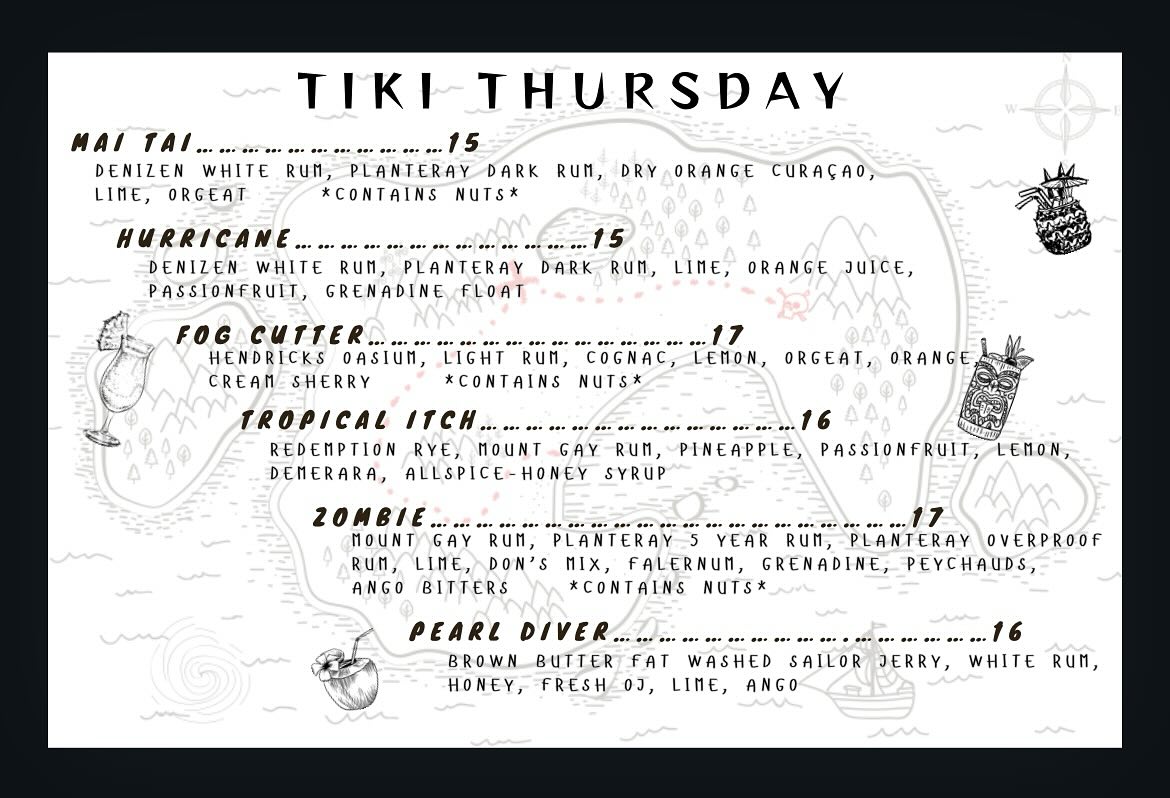 TIKI THURSDAY
MAI TAI………………………………15
DENIZEN WHITE RUM, PLANTERAY DARK RUM, DRY ORANGE CURAÇAO,
LIME, ORGEAT *CONTAINS NUTS*
HURRICANE……………………………………15
DENIZEN WHITE RUM, PLANTERAY DARK RUM, LIME, ORANGE JUICE,
PASSIONFRUIT, GRENADINE FLOAT
FOG CUTTER…………………………………………17
HENDRICKS OASIUM, LIGHT RUM, COGNAC, LEMON, ORGEAT, ORANGE,
CREAM SHERRY *CONTAINS NUTS*
TROPICAL ITCH………………………………………16
REDEMPTION RYE, MOUNT GAY RUM, PINEAPPLE, PASSIONFRUIT, LEMON,
DEMERARA, ALLSPICE-HONEY SYRUP
ZOMBIE……………………………………………………………17
MOUNT GAY RUM, PLANTERAY 5 YEAR RUM, PLANTERAY OVERPROOF
RUM, LIME, DON'S MIX, FALERNUM, GRENADINE, PEYCHAUDS,
ANGO BITTERS *CONTAINS NUTS*
PEARL DIVER……………………………….………………16
BROWN BUTTER FAT WASHED SAILOR JERRY, WHITE RUM,
HONEY, FRESH OJ, LIME, ANGO
N
W
E